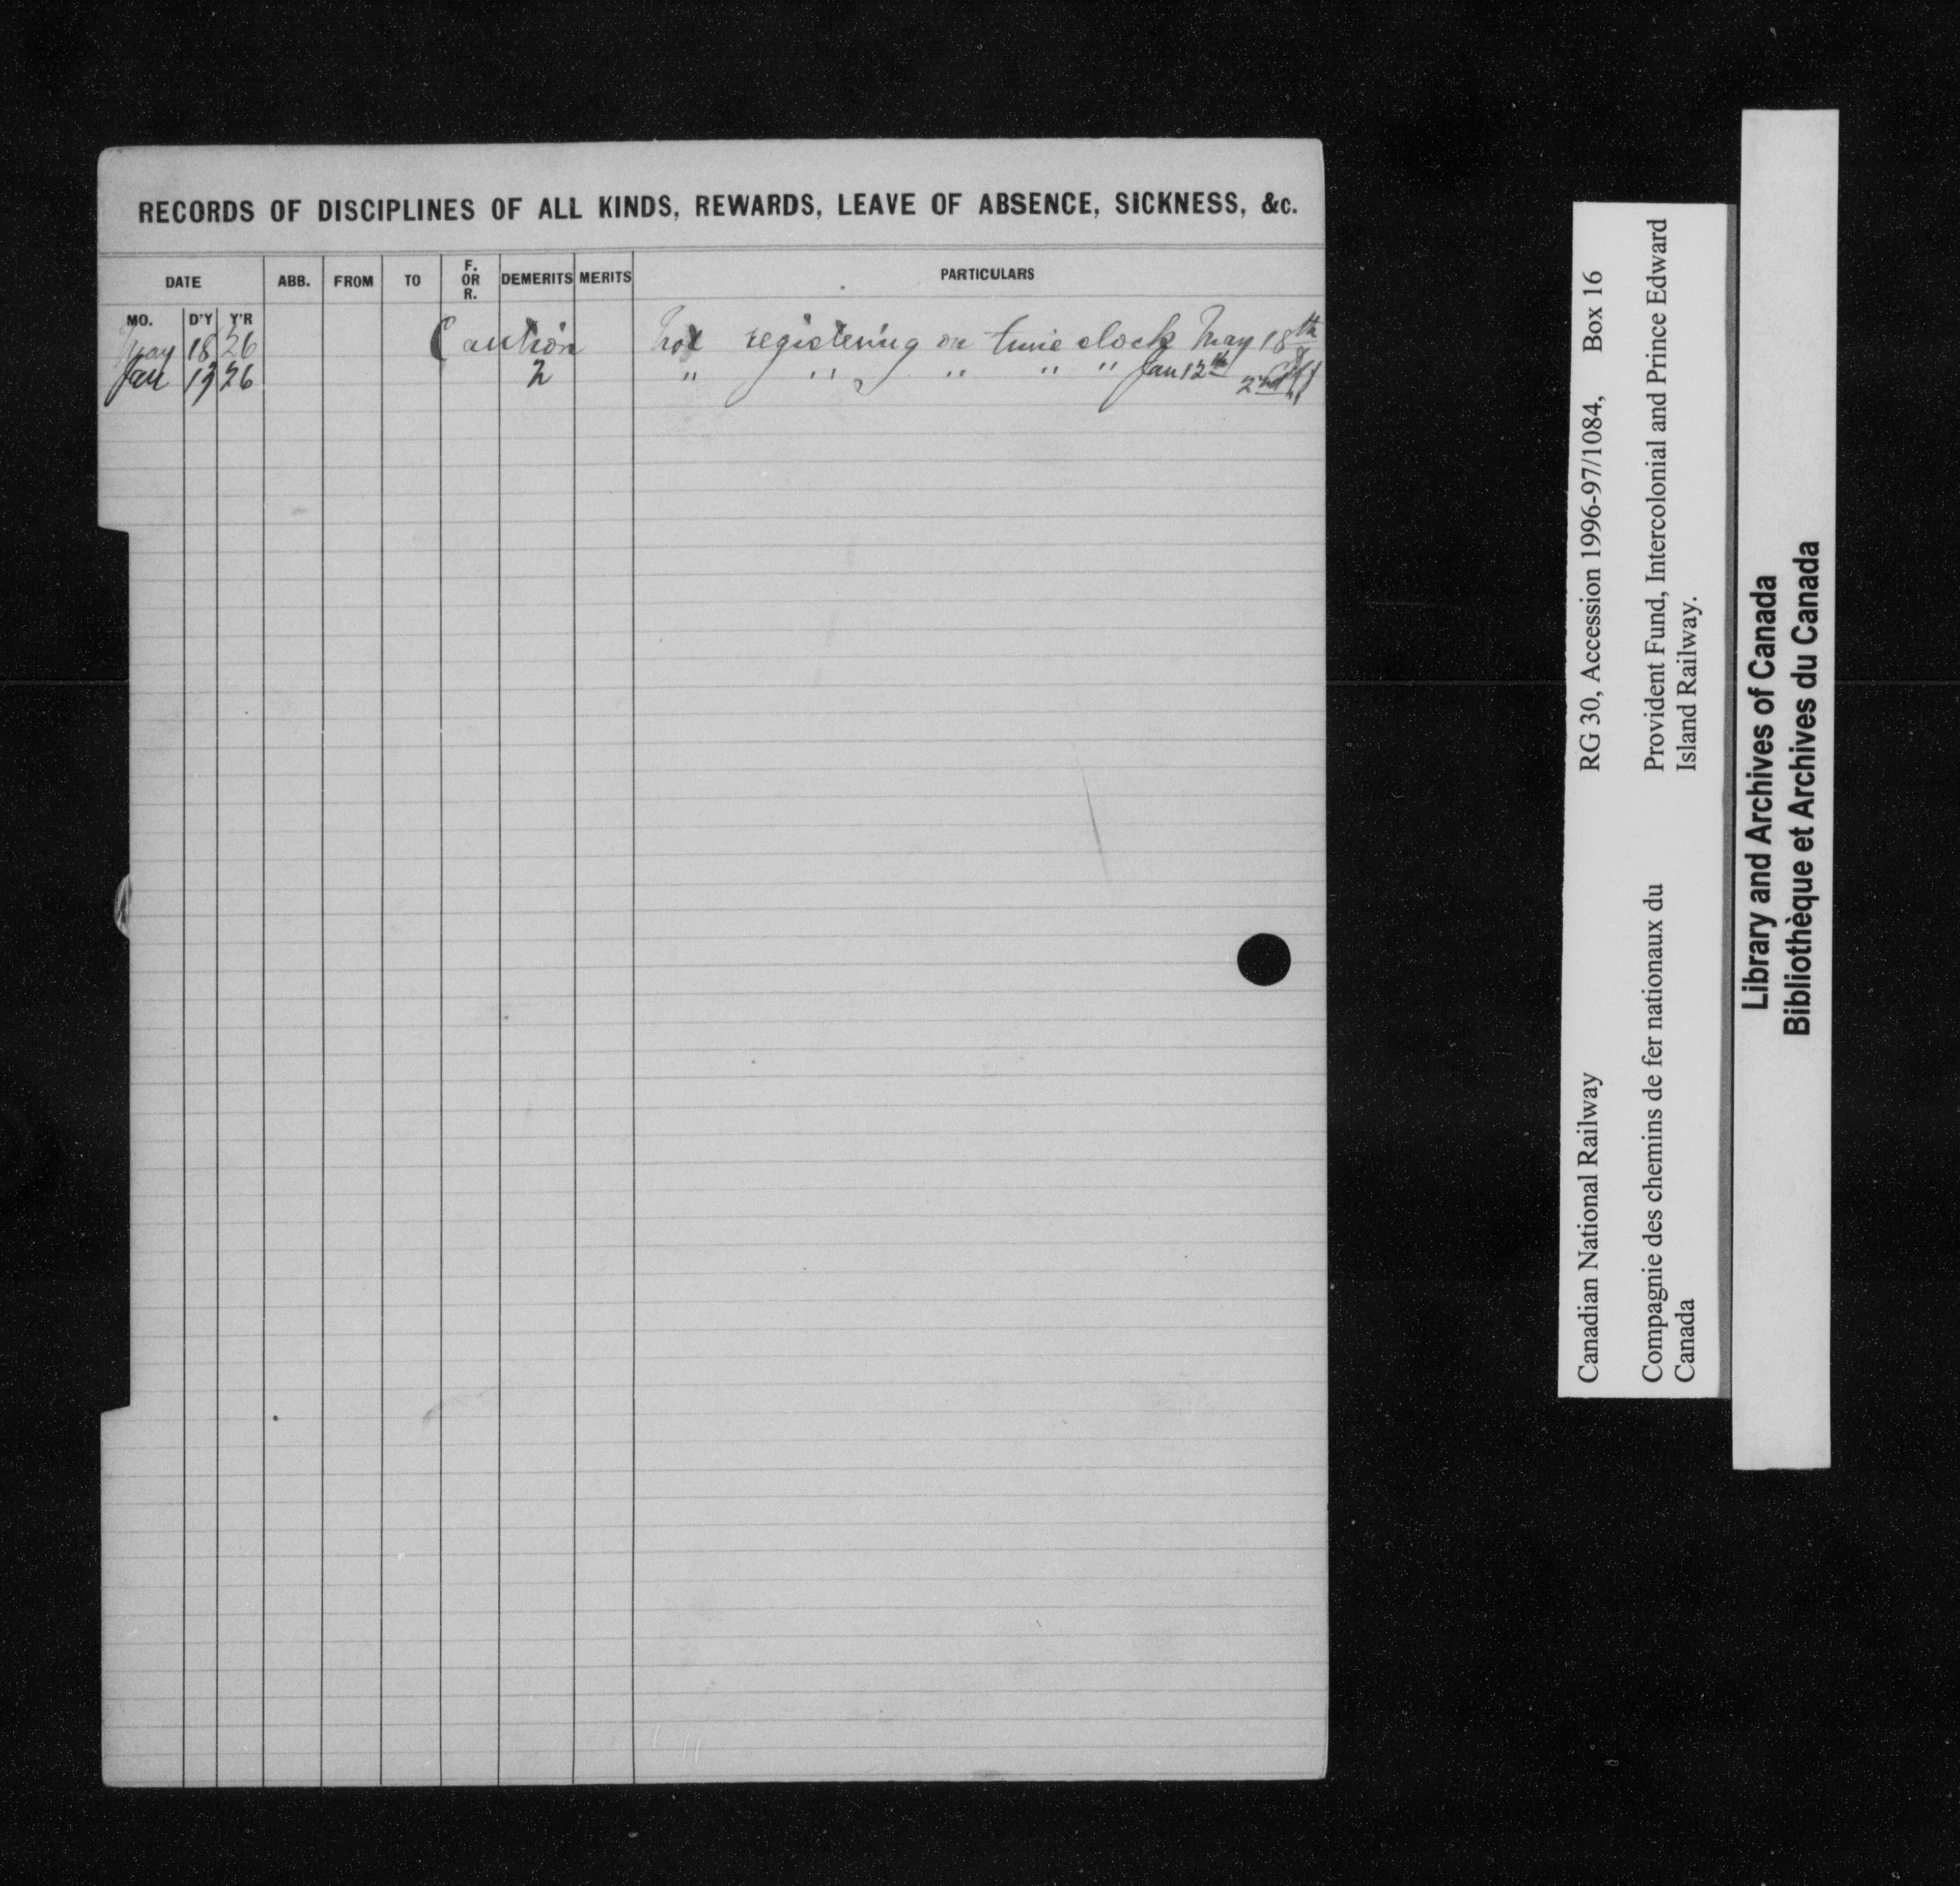 RECORDS OF DISCIPLINES OF ALL KINDS, REWARDS, LEAVE OF ABSENCE, SICKNESS, &c.
DATE ABB. FROM TO F. OR R. DEMERITS MERITS PARTICULARS
MO. D'Y Y'R
May 18 26 Caution Not registering on time clock May 18th
Jan 26 2 " " " " " Jan 12th
2nd
Canadian National Railway RG 30, Accession 1996-97/1084, Box 16
Compagnie des chemins de fer nationaux du Provident Fund, Intercolonial and Prince Edward
Canada Island Railway.
Library and Archives of Canada
Bibliothèque et Archives du Canada